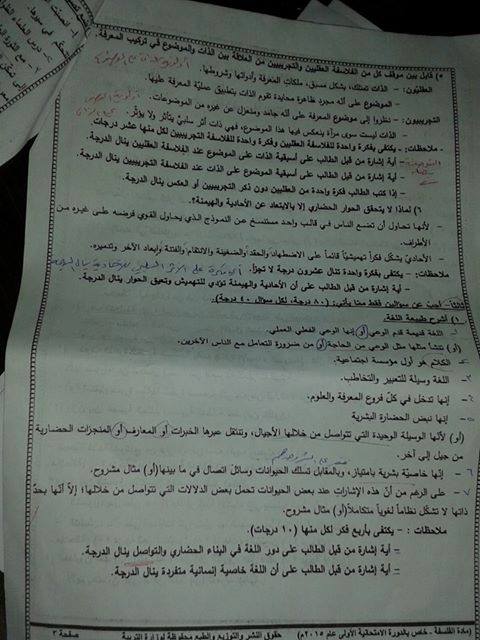 ٥) قابل بين موقف كل من الفلاسفة العقليين والتجريبيين من العلاقة بين الذات والموضوع في تركيب المعرفة.
العقليون: - الذات تمتلك، بشكل مسبق، ملكات المعرفة وأدواتها وشروطها.
- الموضوع على أنه مجرد ظاهرة محايدة تقوم الذات بتطبيق عملية المعرفة عليها.
التجريبيون: - نظروا إلى موضوع المعرفة على أنه جامد ومنعزل عن غيره من الموضوعات.
- الذات ليست سوى مرآة ينعكس فيها هذا الموضوع، فهي ذات أثر سلبي يتأثر ولا يؤثر.
- ملاحظات: - يكتفى بفكرة واحدة للفلاسفة العقليين وفكرة واحدة للفلاسفة التجريبيين لكل منها عشر درجات.
- أية إشارة من قبل الطالب على أسبقية الذات على الموضوع عند الفلاسفة العقليين ينال الدرجة.
- أية إشارة من قبل الطالب على أسبقية الموضوع على الذات عند الفلاسفة التجريبيين ينال الدرجة.
- إذا كتب الطالب فكرة واحدة من العقليين دون ذكر التجريبيين أو العكس ينال الدرجة.
٦) لماذا لا يتحقق الحوار الحضاري إلا بالابتعاد عن الأحادية والهيمنة؟
- لأنها تحاول أن تضع الناس في قالب واحد مستنسخ عن النموذج الذي يحاول القوي فرضه على غيره من
الأطراف.
- الأحادي يشكل فكراً تهميشياً قائماً على الاضطهاد والحقد والضغينة والانتقام والفتنة وإبعاد الآخر وتدميره.
ملاحظات: - يكتفى بفكرة واحدة تنال عشرون درجة لا تجزأ.
- أية إشارة من قبل الطالب على أن الأحادية والهيمنة تؤدي للتهميش وتعيق الحوار ينال الدرجة.
ثالثاً- أجب عن سؤالين فقط مما يأتي: (٨٠ درجة، لكل سؤال ٤٠ درجة).
١) اشرح طبيعة اللغة.
١- اللغة قديمة قدم الوعي (أو) إنها الوعي الفعلي العملي.
(أو) تنشأ مثلها مثل الوعي من الحاجة (أو) من ضرورة التعامل مع الناس الآخرين.
٢- الكلام هو أول مؤسسة اجتماعية.
٣- اللغة وسيلة للتعبير والتخاطب.
٤- إنها تدخل في كلّ فروع المعرفة والعلوم.
٥- إنها نبض الحضارة البشرية
(أو) لأنها الوسيلة الوحيدة التي تتواصل من خلالها الأجيال، وتنتقل عبرها الخبرات أو المعارف أو المنجزات الحضارية
من جيل إلى آخر.
٦- إنها خاصيّة بشرية بامتياز، وبالمقابل تسلك الحيوانات وسائل اتصال في ما بينها (أو) مثال مشروح.
٧- على الرغم من أنّ هذه الإشارات عند بعض الحيوانات تحمل بعض الدلالات التي تتواصل من خلالها؛ إلاّ أنّها بحدّ
ذاتها لا تشكل نظاماً لغوياً متكاملاً (أو) مثال مشروح.
ملاحظات: - يكتفى بأربع فكر لكل منها (١٠ درجات).
- أية إشارة من قبل الطالب على دور اللغة في البناء الحضاري والتواصل ينال الدرجة.
- أية إشارة من قبل الطالب على أن اللغة خاصية إنسانية متفردة ينال الدرجة.
(مادة الفلسفة - خاص بالدورة الامتحانية الأولى عام ٢٠١٥م) حقوق النشر والتوزيع والطبع محفوظة لوزارة التربية صفحة ٣